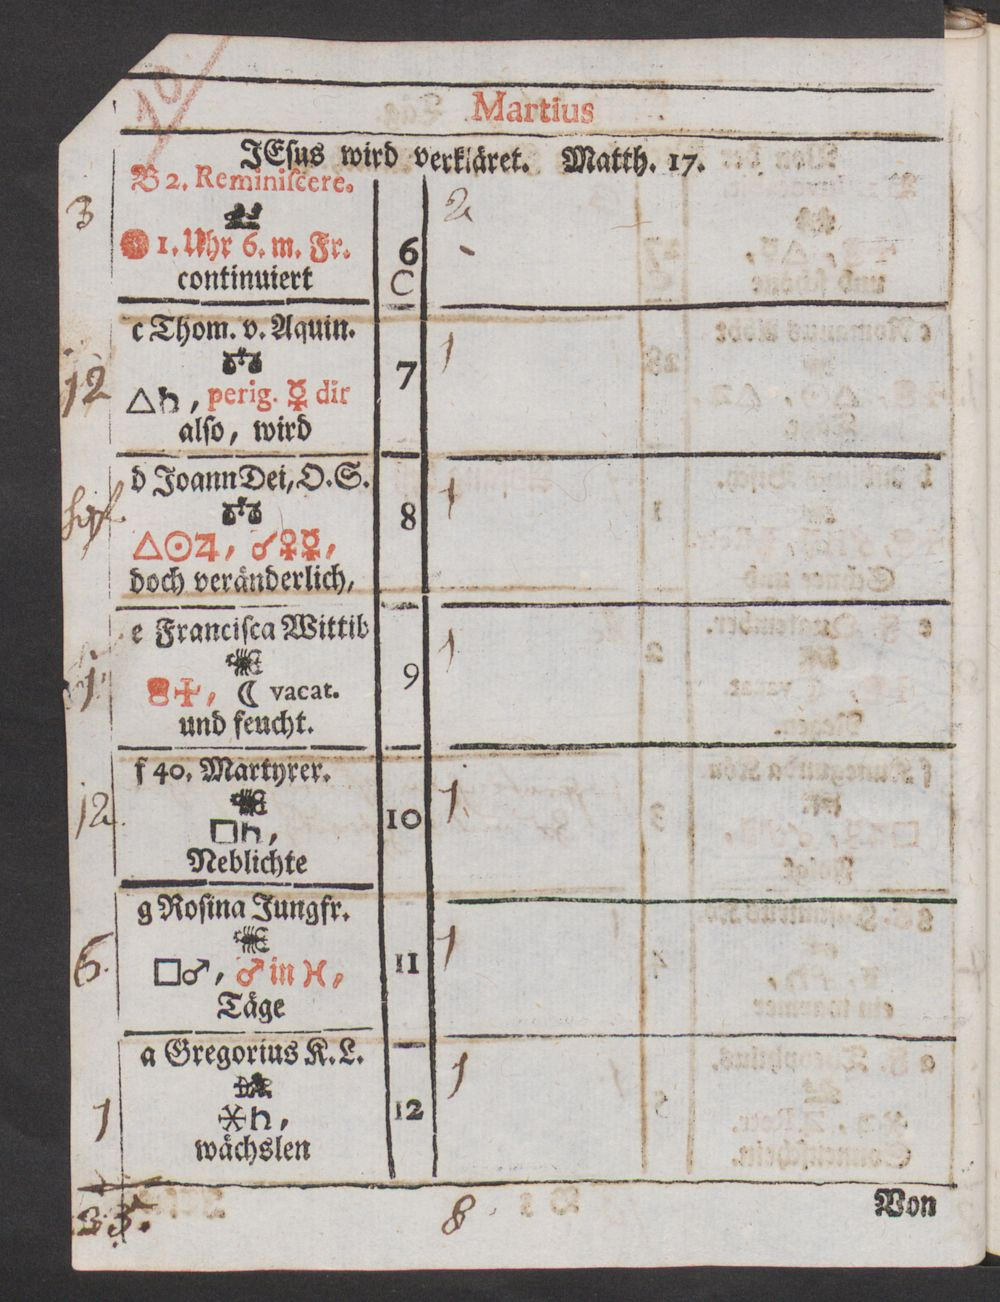 10
Martius
JEsus wird verkläret. Matth. 17.
B 2. Reminiscere.
3
2
1. Uhr 6. m. Fr.
6
continuiert
C
c Thom. v. Aquin.
12
7
1
△♄, perig. ☿ dir
also, wird
d Joann Dei, O.S.
8
1
△☉♃, ☌♀☿,
doch veränderlich,
e Francisca Wittib
1
9
1
☾ vacat.
und feucht.
f 40. Martyrer.
12
10
1
□♄,
Neblichte
g Rosina Jungfr.
6.
11
1
□♂, ♂ in ♓,
Täge
a Gregorius K.L.
1
12
1
⚹♄,
wächslen
35.
8
Von